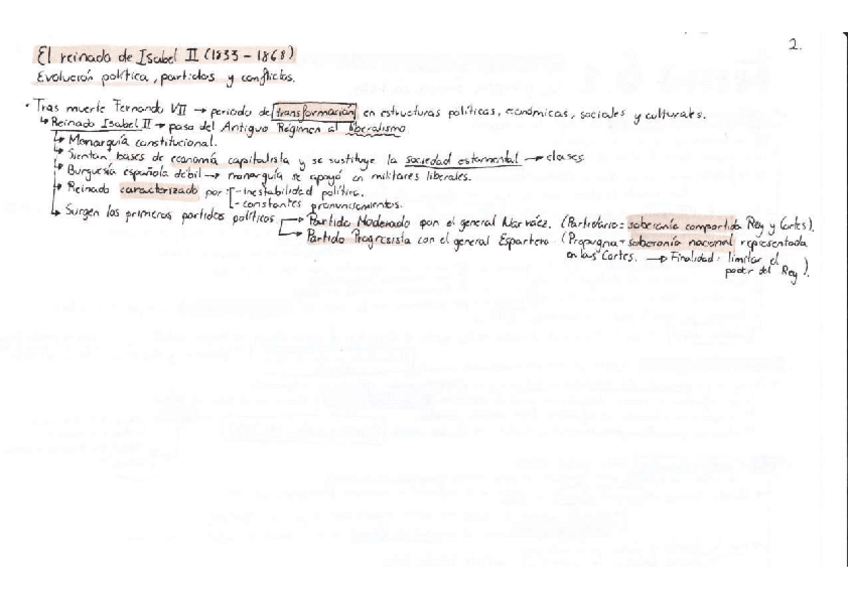 2.
El reinado de Isabel II (1833 - 1868)
Evolución política, partidos y conflictos.
• Tras muerte Fernando VII → periodo de transformación en estructuras políticas, económicas, sociales y culturales.
↳ Reinado Isabel II → paso del Antiguo Régimen al liberalismo
↳ Monarquía constitucional.
↳ Sientan bases de economía capitalista y se sustituye la sociedad estamental → clases.
↳ Burguesía española débil → monarquía se apoyó en militares liberales.
↳ Reinado caracterizado por: - inestabilidad política.
- constantes pronunciamientos.
↳ Surgen los primeros partidos políticos → Partido Moderado con el general Narváez. (Partidario = soberanía compartida Rey y Cortes).
→ Partido Progresista con el general Espartero (Propugna = soberanía nacional representada
en las Cortes. → Finalidad: limitar el
poder del Rey).